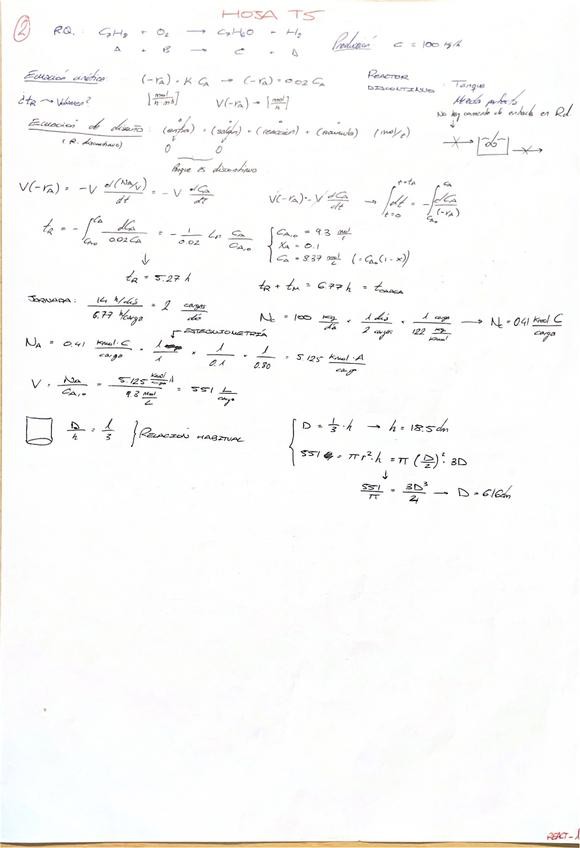 HOJA T5
② RQ: C7H8 + O2 → C7H6O + H2 Producción C = 100 kg/h
A + B → C + D
Ecuación cinética: (-rA) = K CA → (-rA) = 0.02 CA REACTOR DISCONTINUO: Tanque
Mezcla perfecta
¿tR → Volumen? [mol/h·m3] V(-rA) → [mol/h] No hay corriente de entrada en Rd.
Ecuación de diseño: (entra) = (salen) + (reacción) + (acumula) (mol/t)
(R. discontinuo) 0 0
Porque es discontinuo
V(-rA) = -V d(NA/V)/dt = -V dCA/dt V(-rA) = -V dCA/dt → ∫t=0 t=tR dt = -∫CA0 CA dCA/(-rA)
tR = -∫CA,0 CA dCA/0.02CA = -1/0.02 Ln CA/CA,0 { CA,0 = 9.3 mol/L
XA = 0.1
CA = 8.37 mol/L (= CA0(1-x))
↓
tR = 5.27 h tR + tM = 6.77 h = tCARGA
JORNADA: 14 h/día / 6.77 h/carga = 2 cargas/día Nc = 100 kg/día × 1 día/2 cargas × 1 carga/122 kg/kmol → Nc = 0.41 kmol C/carga
ESTEQUIOMETRÍA
NA = 0.41 kmol C/carga × 1/1 × 1/0.1 × 1/0.80 = 5.125 kmol A/carga
V = NA/CA,0 = 5.125 kmol/carga A / 9.3 mol/L = 551 L/carga
D/h = 1/3 } RELACIÓN HABITUAL { D = 1/3 · h → h = 18.5 dm
551 = π r² · h = π (D/2)² · 3D
↓
551/π = 3D³/4 → D = 6.16 dm
REACT-1